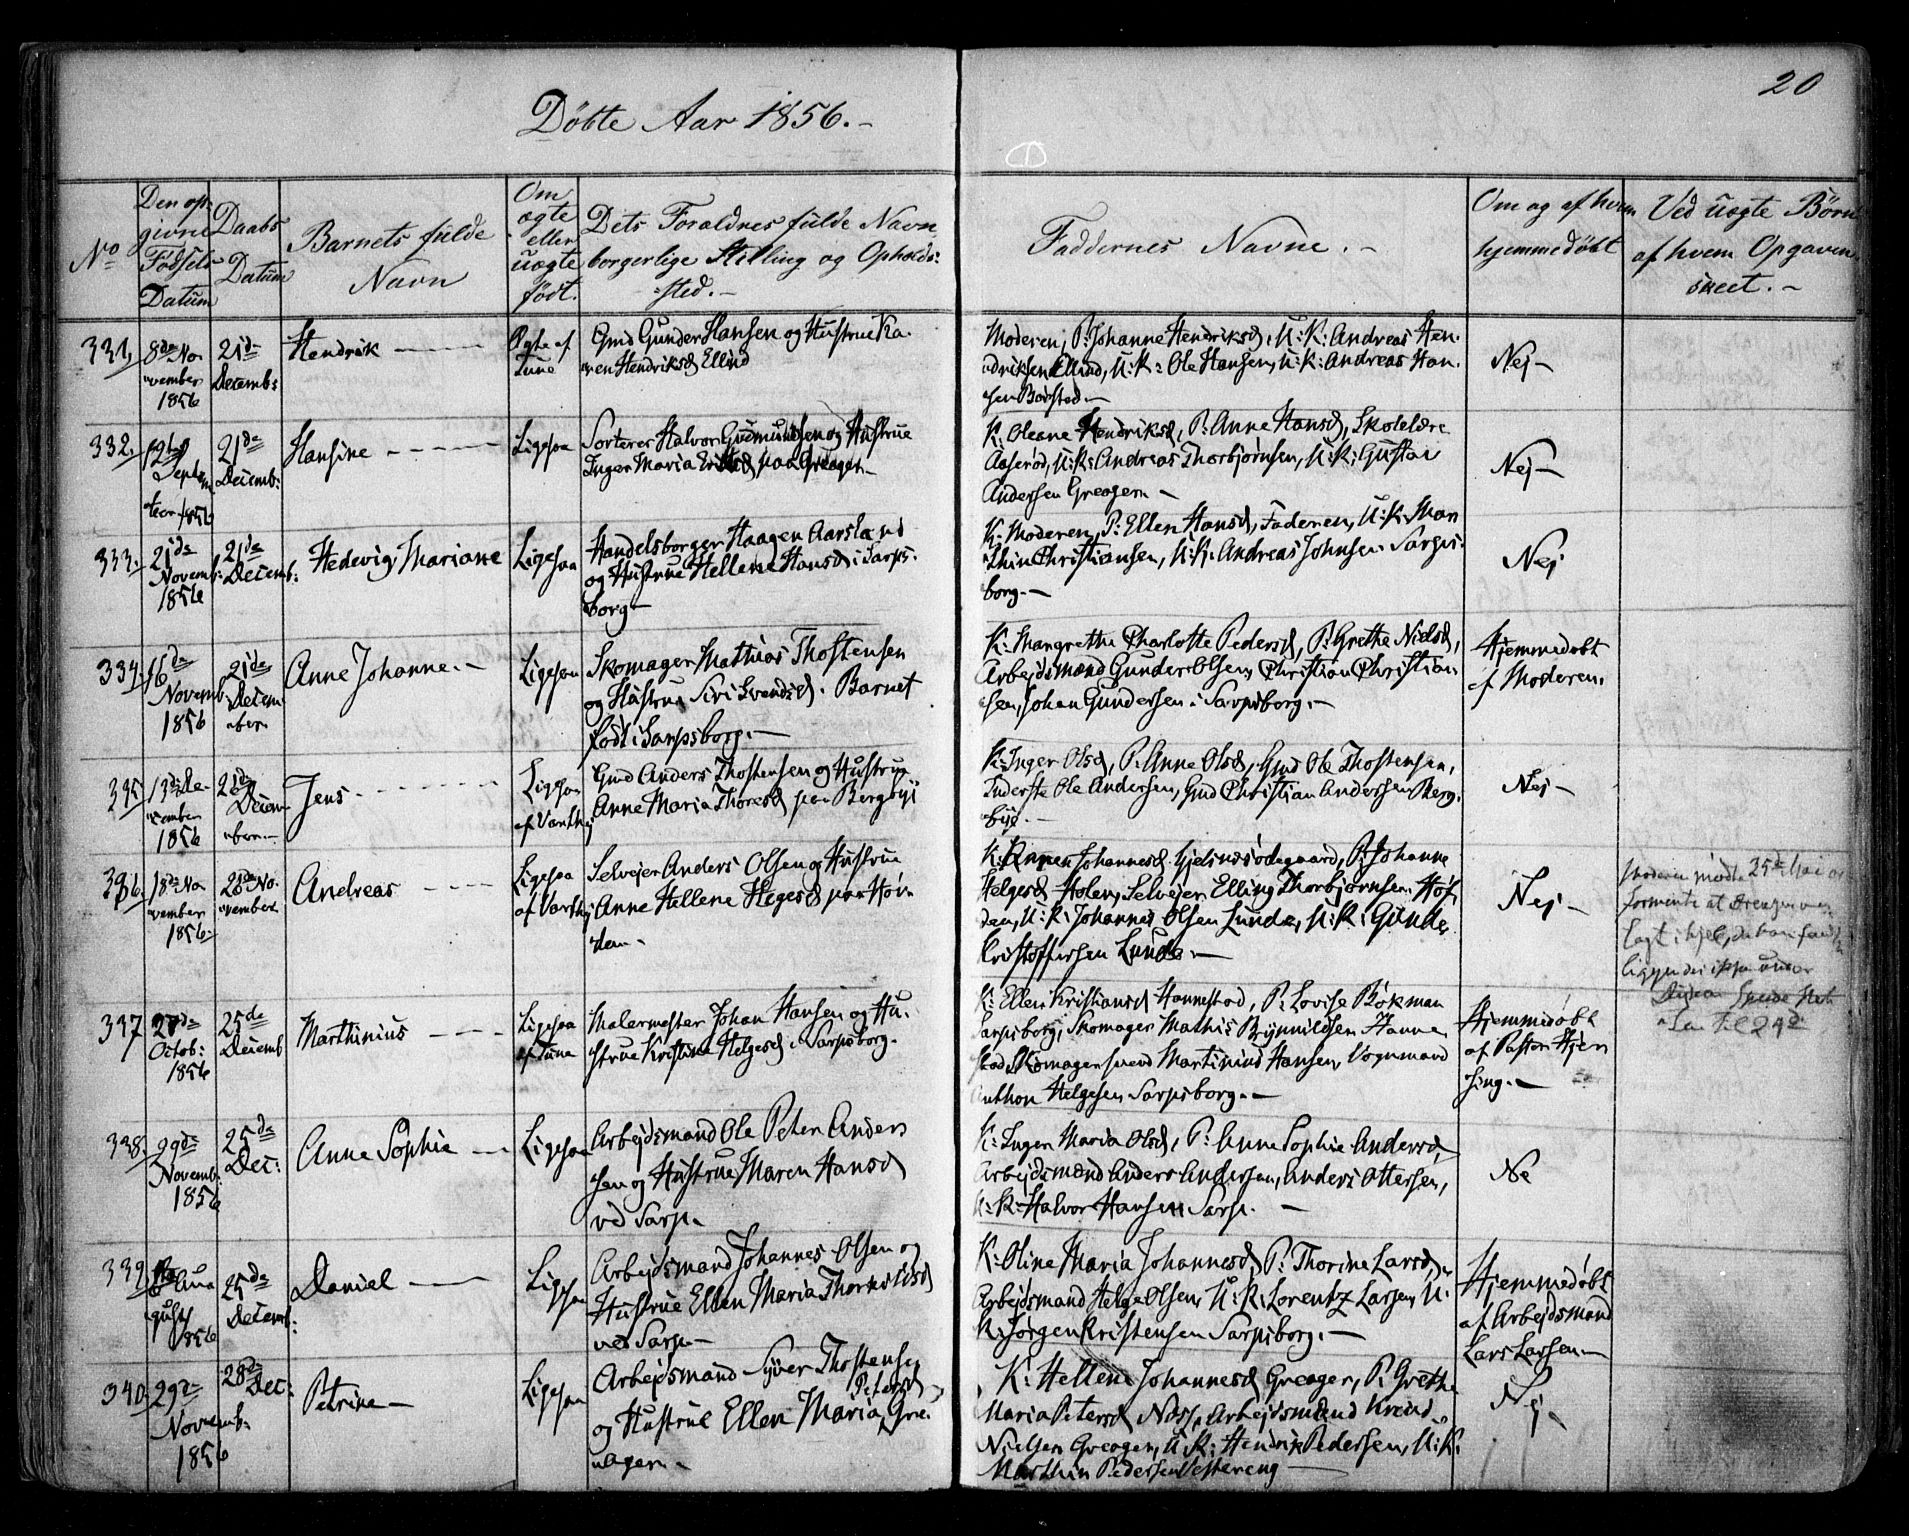 20
Döbte Aar 1856.-
No
Den op-
givne
Födsels
Datum
Daabs
Datum
Barnets fulde
Navn
Om
ægte
eller
uægte
födt.
Dets Foraldres fulde Navn
borgerlige Stilling og Opholds:
sted.-
Faddernes Navne.-
Om og af hvem
hjemmedöbt
Ved uægte Börn
af hvem Opgaven
skeet.-
331,
8de No
vember
1856
21de
Decemb:
Hendrik
Ægte af
Tune
Gmd Gunder Hansen og Hustrue Ka-
ren Hendriksd Ellind
Moderen, P: Johanne Hendriksd, U:K: Andreas Hen-
driksen Ellind, U:K: Ole Hansen, U:K: Andreas Han-
sen Börsted.-
Nej-
332.
Septem
ber 1856
21de
Decemb:
Hansine
Ligesaa
Sorterer Halvor Gudmundsen og Hustrue
Inger Maria paa Greager.-
K: Oleane Hendriksd, P: Anne Hansd, Skolelære
Aaserød, U:K: Andreas Thorbjørnsen, U:K: Gustav
Andersen Greagern.-
Nej-
333.
21de
Novemb:
1856
21de
Decemb:
Hedevig Mariane
Ligesaa
Handelsborger Haagen Aarsland
og Hustrue Hellene Hansd i Sarps-
borg.-
K: Moderen, P: Ellen Hansd, Faderen, U:K: Mar
thin Christiansen, U:K: Andreas Johnsen Sarps-
borg.-
Nej
334.
16de
Novemb
1856
21de
Decem
ber
Anne Johanne.-
Ligesaa
Skomager Mathias Thostensen
og Hustrue Siri Svendsd. Barnet
födt i Sarpsborg.-
K: Mangrethe Charlotte Pedersd, P: Grethe Nielsd,
Arbejdsmænd Gunder Olsen, Christian Christian
sen, Johan Gundersen i Sarpsborg.-
Hjemmedöbt
af Moderen.
335.
13de De-
cember
1856
21de
Decem
ber.-
Jens
Ligesaa
af Vartheg
Gmd Anders Thostensen og Hustrue
Anne Maria Thoresd paa Bergbye
K: Inger Olsd, P: Anne Olsd, Gmd Ole Thostensen,
Inderste Ole Andersen, Gmd Christian Andersen Berg-
bye.-
Nej-
336.
18de No
vember
1856.
28de No
vember
Andreas
Ligesaa
af Vartheg
Selvejer Anders Olsen og Hustrue
Anne Hellene Hegesd paa Höv
den.
K: Johannesd Gjelsnesødegaard, P: Johanne
Helgesd Holen, Selvejer Elling Thorbjørnsen Höf
den, U:K: Johannes Olsen Lunde, U:K: Gunde
Kristoffersen Lunde.-
Nej-
Moderen mødte 25de Mai
formente at Drengen
lagt ihjel,
337.
27de
Octob:
1856
25de
Decemb
Marthinius
Ligesaa
af Tune
Malermester Johan Hansen og Hu-
strue Kristine Helgesd i Sarpsborg.
K: Ellen Kristiansd Hannestad, P: Lovise Bökman
Sarpsborg, Skomager Mathis Brynnildsen Hanne
stad, Skomagersvend Martinius Hansen, Vognmand
Anthon Helgesen Sarpsborg.-
Hjemmedöbt
af Pastor Hjen
sing.-
338.
29de
Novemb:
1856
25de
Dec:
Anne Sophie
Ligesaa
Arbejdsmand Ole Peter Anders
sen og Hustrue Maren Hansd
ved Sarp.
K: Inger Maria Olsd, P: Anne Sophie Andersd,
Arbejdsmænd Anders Andersen, Anders Ottersen,
U:K: Halvor Hansen Sarp.-
Ne
339.
Au
gust
1856
25de
Decemb:
Daniel
Ligesaa
Arbejdsmand Johannes Olsen og
Hustrue Ellen Maria Thorkildsd
ved Sarp.-
K: Oline Maria Johannesd, P: Thorine Larsd,
Arbejdsmand Helge Olsen, U:K: Lorentz Larsen, U:
K: Jörgen Kristensen Sarpsborg.-
Hjemmedöbt
af Arbejdsmand
Lars Larsen.-
340.
29de
Novemb.
1856
28de
Dec:
Petrine-
Ligesaa
Arbejdsmand Syver Thostensen
og Hustrue Ellen Maria Petersd, Gre-
agern.
K: Hellene Johannesd Greager, P: Grethe
Maria Petersd Næss, Arbejdsmænd Krend
Nielsen Greager, U:K: Hendrik Pedersen, U:K:
Marthin Pedersen Vestereng
Nej-